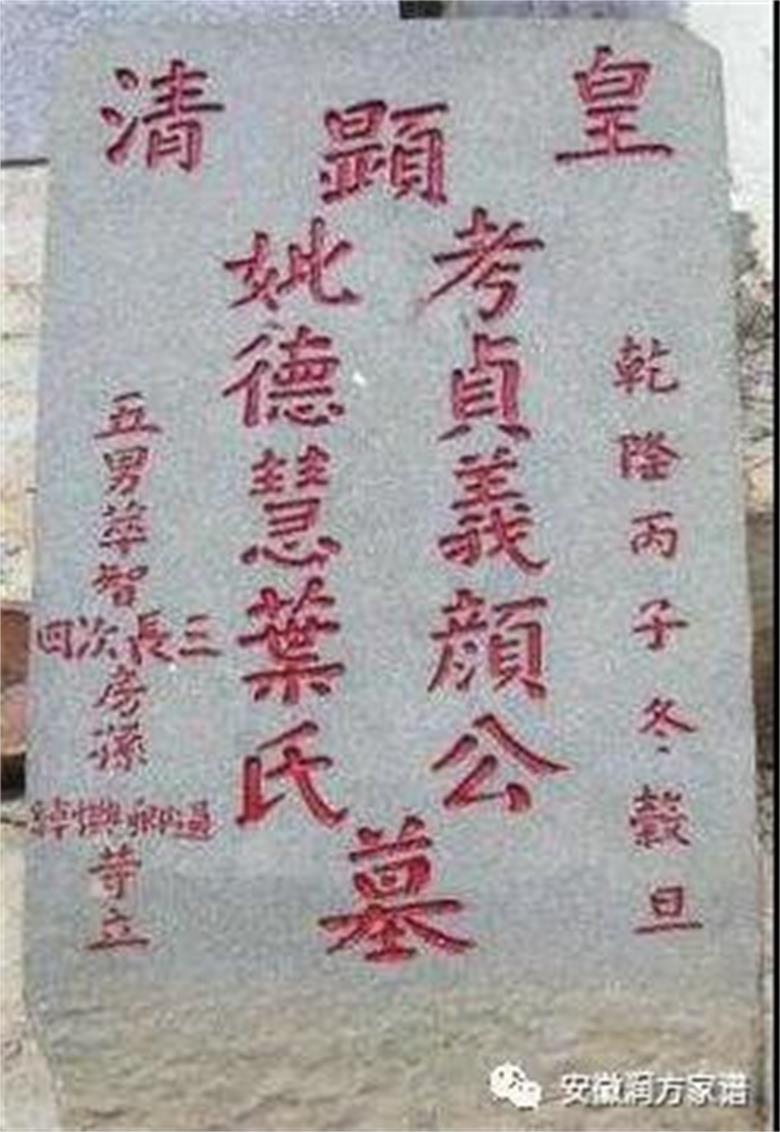 皇清
顯
考貞義顏公
妣德慧葉氏
墓
乾隆丙子冬穀旦
五男華智
三長次四
房孫
等立
安徽润方家谱